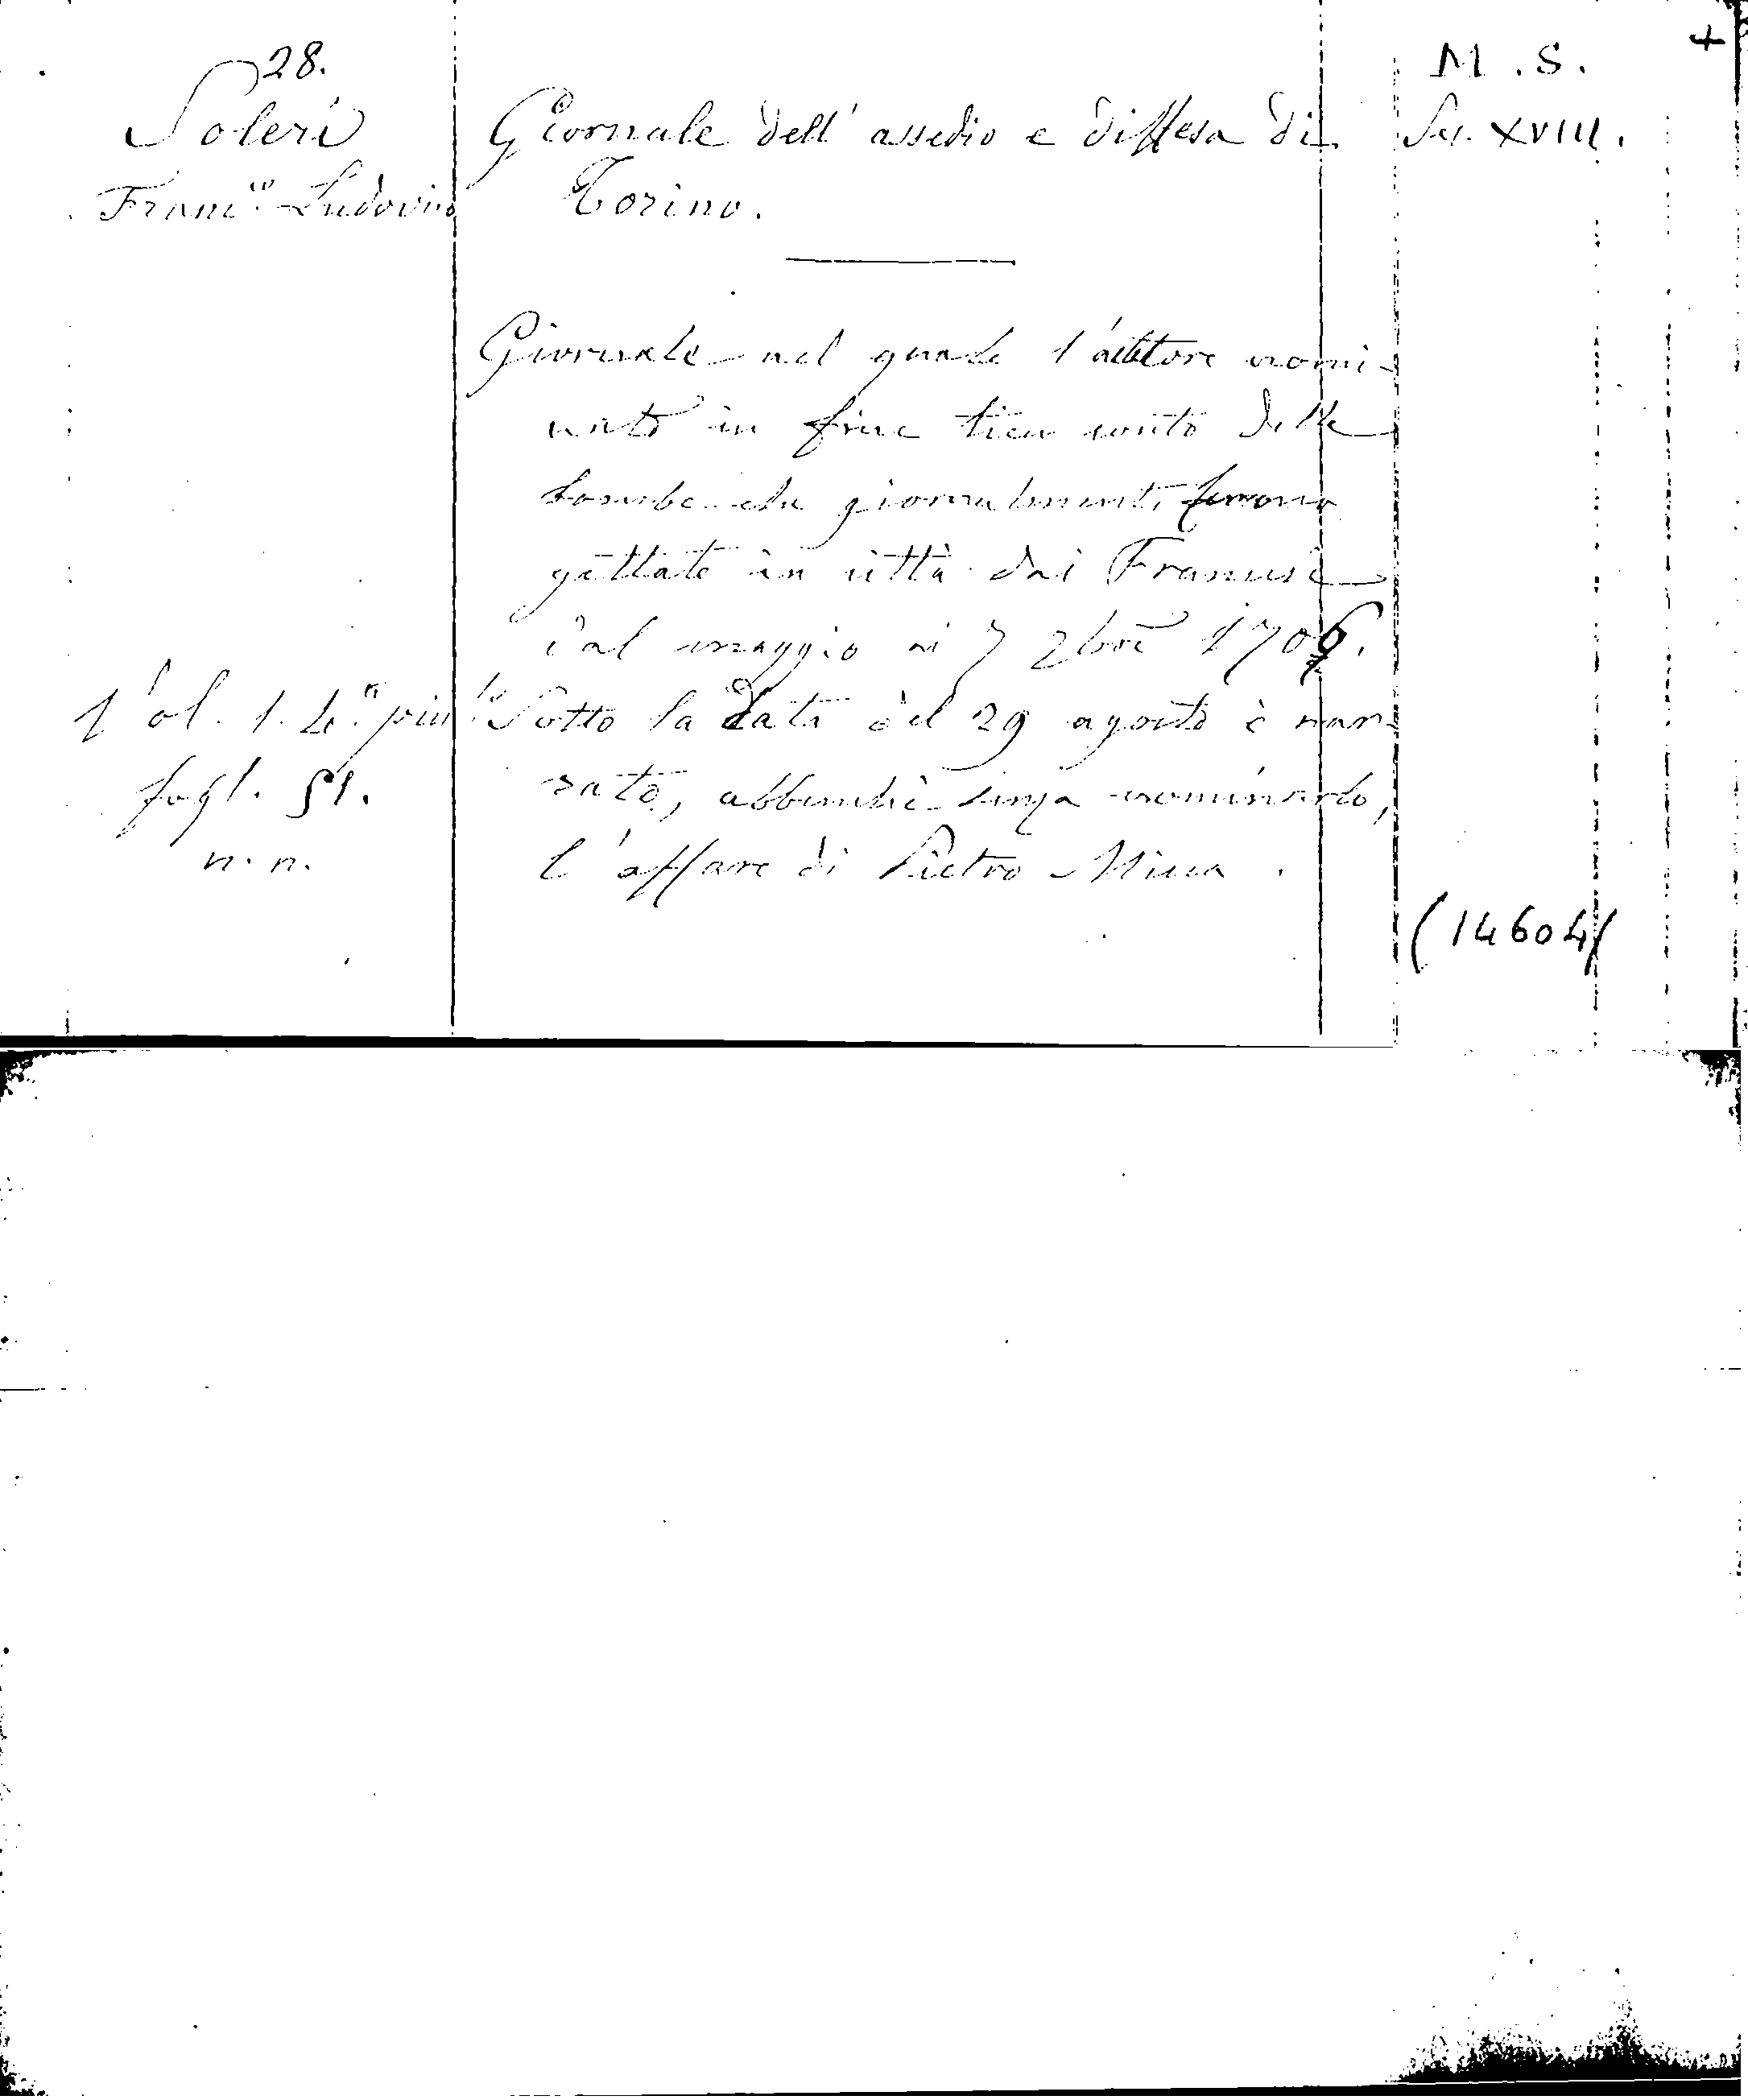 28.
M. S. +
Soleri
Giornale dell' assedio e diffesa di
Sec. XVIII.
Franc.co Ludovico
Torino.
Giornale nel quale l'autore nomi-
nato in fine tien conto delle
bombe che giornalmente furono
gettate in città dai Francesi
dal maggio ai 7 7bre 1706.
Vol. 1. 4.o picc.lo
Sotto la data del 29 agosto è nar-
fogl. 51.
rato, abbenchè senza nominarlo,
n. n.
l'affare di Pietro Micca.
(14604)